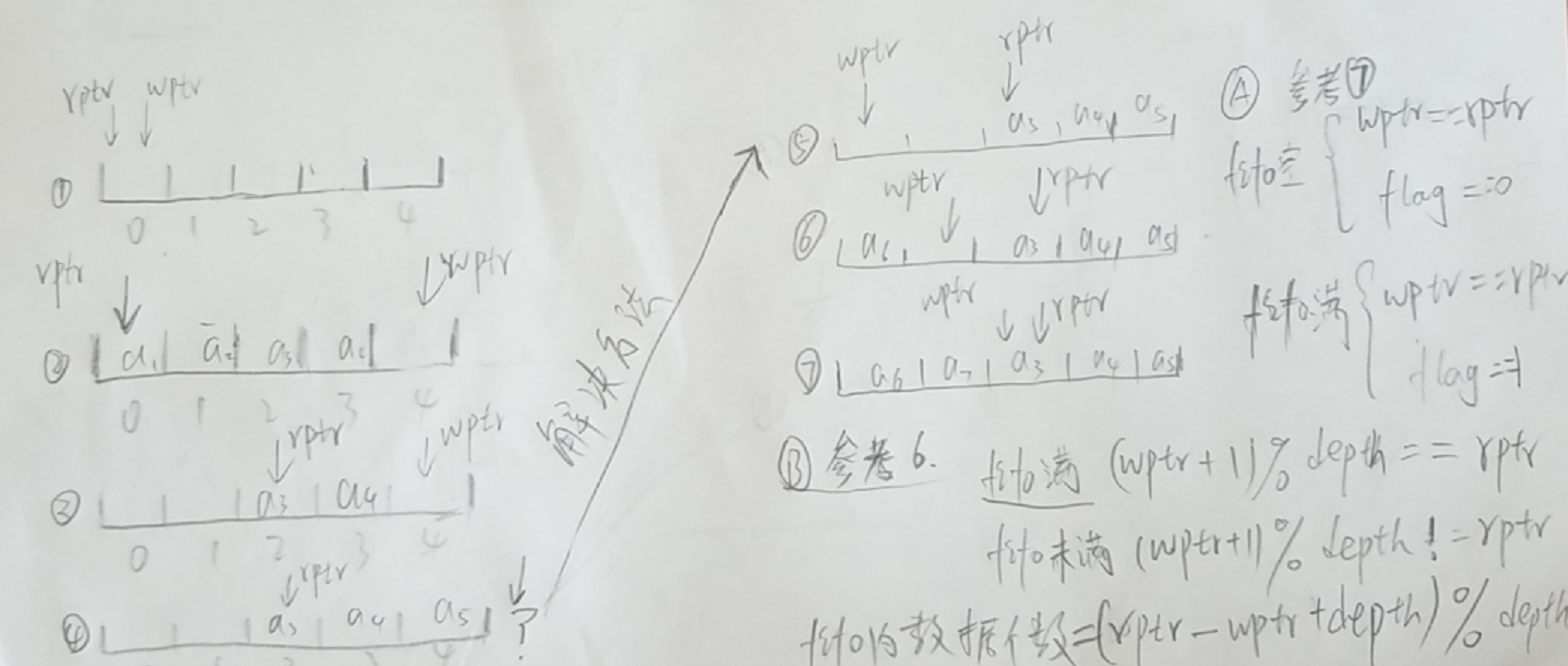 rptr wptr
①
0 1 2 3 4
rptr wptr
② a₁ a₂ a₃ a₄
0 1 2 3 4
rptr wptr
③ a₃ a₄
0 1 2 3 4
rptr
④ a₃ a₄ a₅ ?
解决方法
wptr rptr
⑤ a₃ a₄ a₅
wptr rptr
⑥ a₆ a₃ a₄ a₅
wptr rptr
⑦ a₆ a₇ a₃ a₄ a₅
Ⓐ 参考⑦
fifo空 { wptr==rptr
flag==0
fifo满 { wptr==rptr
flag==1
Ⓑ 参考6.
fifo满 (wptr+1)% depth == rptr
fifo未满 (wptr+1)% depth != rptr
fifo的数据个数=(rptr-wptr+depth)% depth